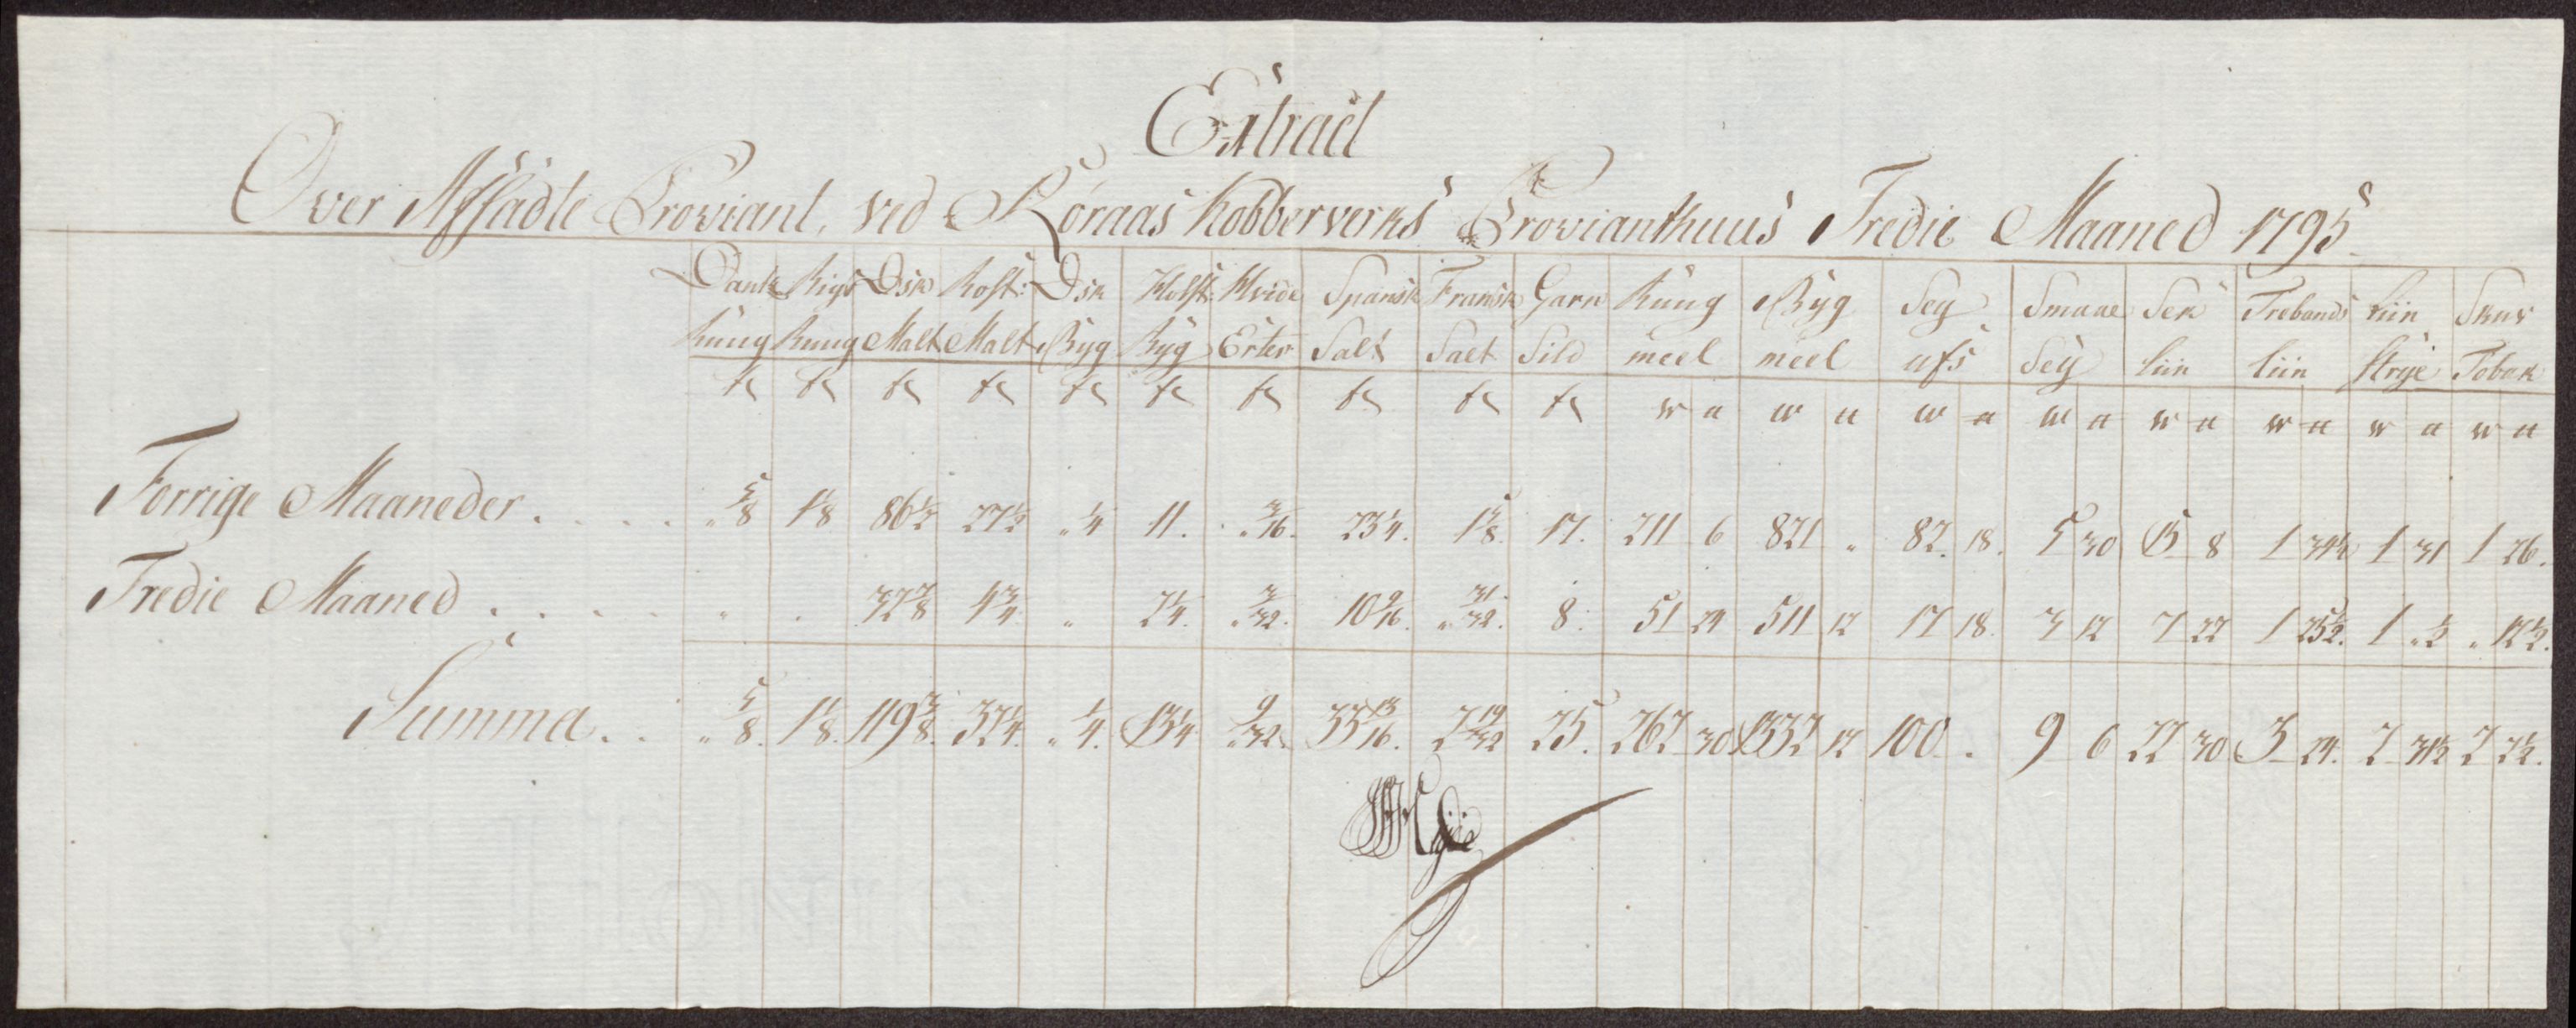 Extract
Over Afsadte Proviant, ved Röraas Kobberverks Provianthuus Tredie Maaned 1795.
Dansk Rug | Rigs Rug | Dsk Malt | Rost: Malt | Dsk Byg | Holst: Byg | Hvide Erter | Spansk Salt | Fransk Salt | Garn Sild | Rug meel | Byg meel | Sey | Smaae Sey | Sek Liin | Trebands Liin | Liin Strÿe | Skur Tobak
Forrige Maaneder . . . . " 5/8 | 1 1/8 | 86 1/2 | 27 1/2 | " 1/4 | 11. | " 3/16. | 23 1/4. | 1 5/8. | 17. | 211 6 | 821 " | 82. 18. | 5 30 | 15 8 | 1 | 1 31 | 1 26.
Tredie Maaned . . . . " | . | 32 7/8 | 4 3/4 | " | 2 1/4. | " 3/32. | 10 9/16. | " 31/32. | 8. | 51 24 | 511 12 | 17 18. | 3 12 | 7 22 | 1 25 1/2. | 1 " 1/2 | " 12 1/2.
Summa . . " 5/8. | 1 1/8. | 119 3/8. | 32 1/4. | " 1/4. | 13 1/4 | " 9/32. | 33 13/16. | 2 19/32 | 25. | 262 30 | 1332 12 | 100 . | 9 6 | 22 30 | 3 24. | 2 31 1/2 | 2 2 1/2.